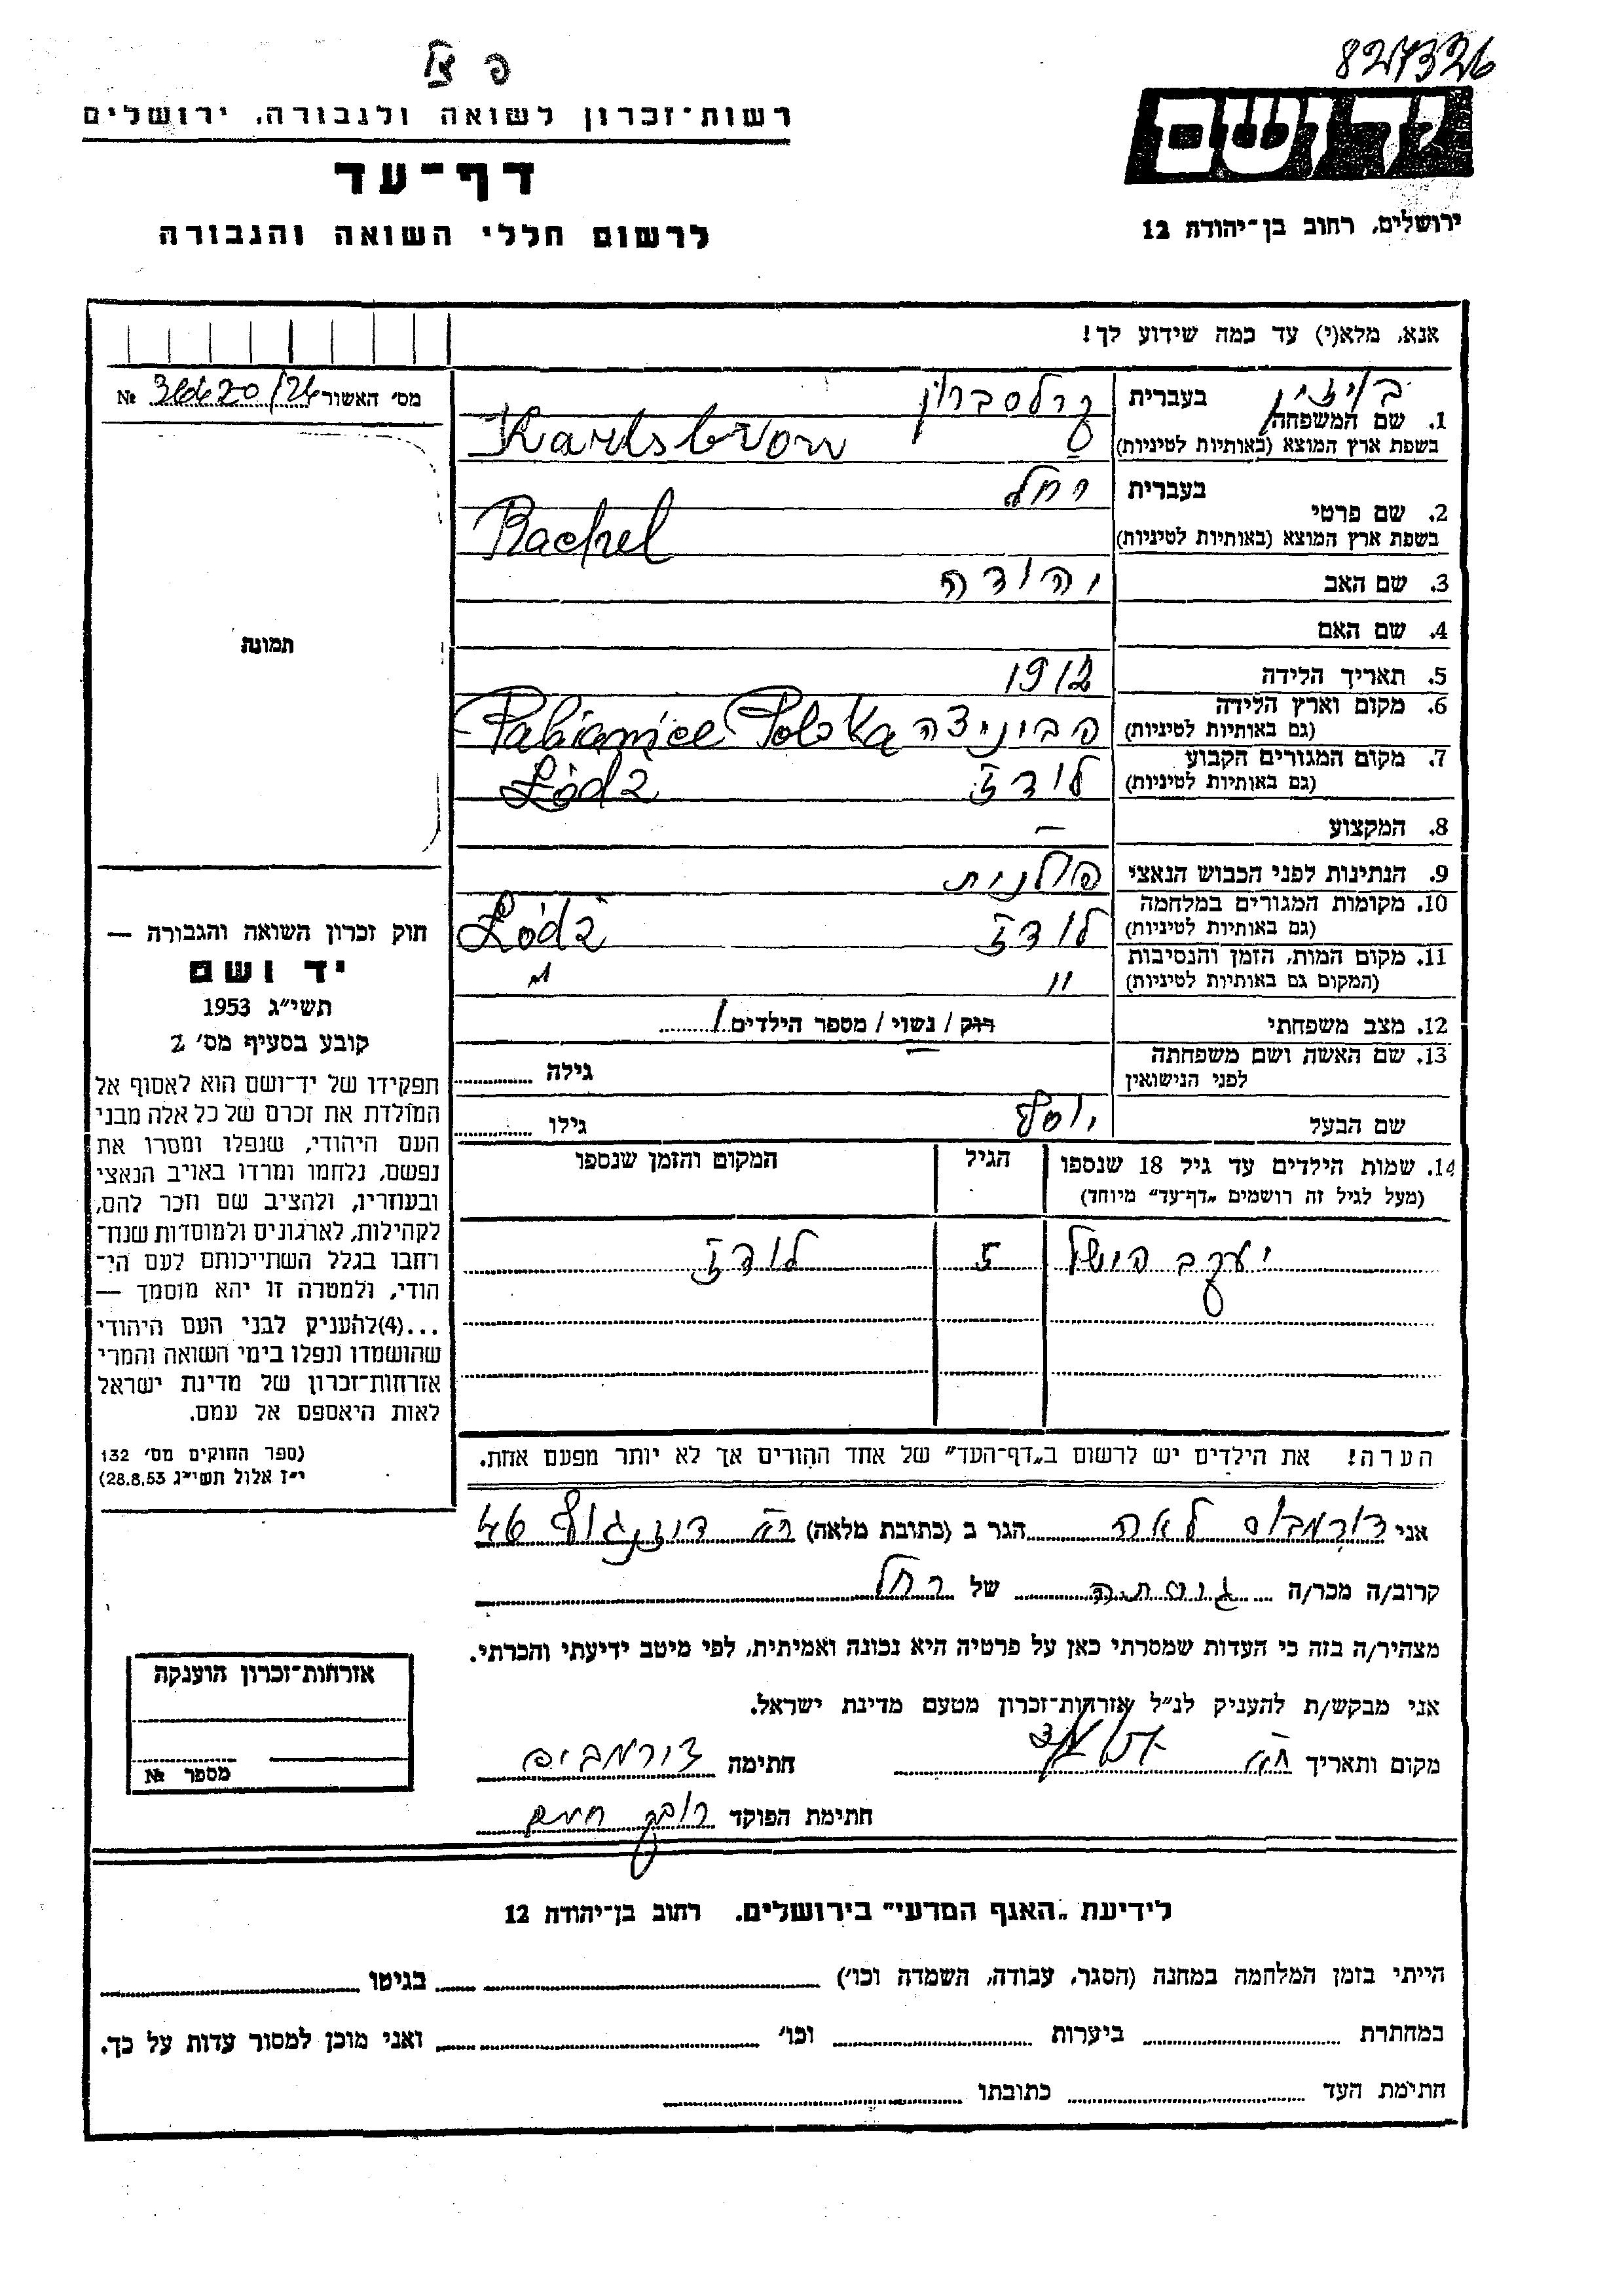 827326
פ
רשות־זכרון לשואה ולגבורה, ירושלים
דף־עד
לרשום חללי השואה והגבורה
יד ושם
ירושלים, רחוב בן־יהודה 12
אנא, מלא(י) עד כמה שידוע לך!
מס׳ האשור 36620/26 №
1. שם המשפחה
בעברית קרלסברון
בשפת ארץ המוצא (באותיות לטיניות) Karlsbron
2. שם פרטי
בעברית רחל
בשפת ארץ המוצא (באותיות לטיניות) Rachel
3. שם האב יהודה
4. שם האם
5. תאריך הלידה 1912
6. מקום וארץ הלידה
(גם באותיות לטיניות) פביניצה Pabianice Polska
7. מקום המגורים הקבוע
(גם באותיות לטיניות) לודז Łódź
8. המקצוע —
9. הנתינות לפני הכבוש הנאצי פולנית
10. מקומות המגורים במלחמה
(גם באותיות לטיניות) לודז Łódź
11. מקום המות, הזמן והנסיבות
(המקום גם באותיות לטיניות) " "
12. מצב משפחתי רוק / נשוי / מספר הילדים 1
13. שם האשה ושם משפחתה
לפני הנישואין — גילה
שם הבעל יוסף גילו
14. שמות הילדים עד גיל 18 שנספו
(מעל לגיל זה רושמים „דף־עד” מיוחד)
הגיל
המקום והזמן שנספו
יעקב הושל 5 לודז
הערה! את הילדים יש לרשום ב„דף־העד” של אחד ההורים אך לא יותר מפעם אחת.
תמונה
חוק זכרון השואה והגבורה —
יד ושם
תשי״ג 1953
קובע בסעיף מס׳ 2
תפקידו של יד־ושם הוא לאסוף אל
המולדת את זכרם של כל אלה מבני
העם היהודי, שנפלו ומסרו את
נפשם, נלחמו ומרדו באויב הנאצי
ובעוזריו, ולהציב שם וזכר להם,
לקהילות, לארגונים ולמוסדות שנח־
רחבו בגלל השתייכותם לעם הי־
הודי, ולמטרה זו יהא מוסמך —
...(4)להעניק לבני העם היהודי
שהושמדו ונפלו בימי השואה והמרי
אזרחות־זכרון של מדינת ישראל
לאות היאספם אל עמם.
(ספר החוקים מס׳ 132
י״ז אלול תשי״ג 28.8.53)
אני לאה הגר ב (כתובת מלאה) דיזנגוף 46
קרוב/ה מכר/ה גיסתה של רחל
מצהיר/ה בזה כי העדות שמסרתי כאן על פרטיה היא נכונה ואמיתית, לפי מיטב ידיעתי והכרתי.
אני מבקש/ת להעניק לנ״ל אזרחות־זכרון מטעם מדינת ישראל.
מקום ותאריך
חתימה
חתימת הפוקד
אזרחות־זכרון הוענקה
מספר №
לידיעת „האגף המדעי” בירושלים. רחוב בן־יהודה 12
הייתי בזמן המלחמה במחנה (הסגר, עבודה, השמדה וכו׳) בגיטו
במחתרת ביערות וכו׳ ואני מוכן למסור עדות על כך.
חתימת העד כתובתו